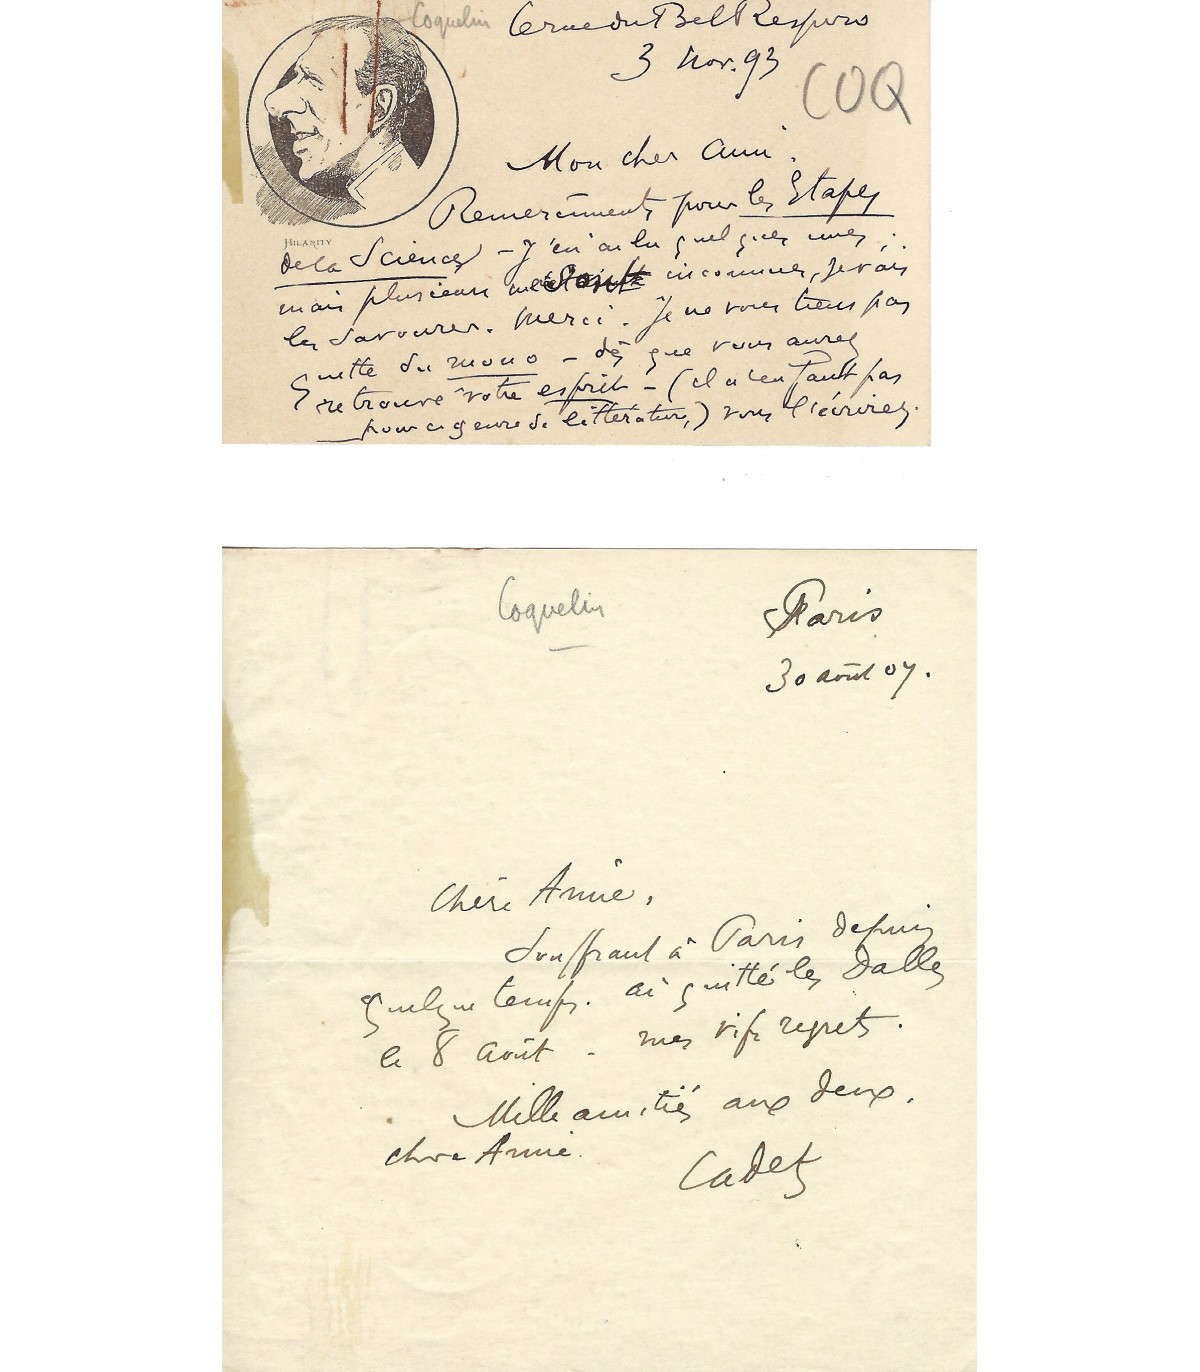 Coquelin
6 rue du Bel Respiro
3 Nov. 93
COQ
Mon cher ami.
Remerciments pour les Etapes
HILARITY
de la Science – J'en ai lu quelques unes ;
mais plusieurs inconnues, je vais
les savourer. Merci. Je ne vous tiens pas
quitte du mono – dès que vous aurez
retrouvé votre esprit – (il n'en faut pas
pour ce genre de littérature,) vous l'écrirez.
Coquelin
Paris
30 août 07.
Chère Annie,
Souffrant à Paris depuis
quelque temps. ai quitté les Dalles
le 8 août – mes vifs regrets.
Mille amitiés aux deux,
chère Annie.
Cadet